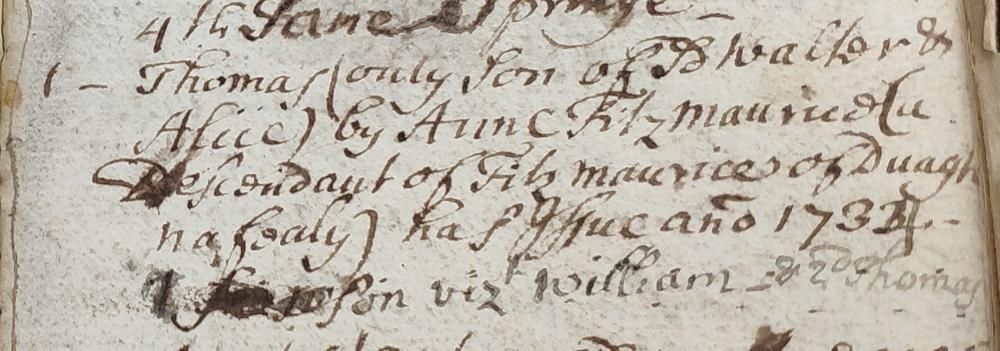 4th Jane Springe -
1 - Thomas (only Son of Sd Walter &
Alice) by Anne Fitzmaurice (a
Descendant of Fitzmaurices of Duagh
nafealy) has Issue año 1733 -
son viz William & 2d Thomas